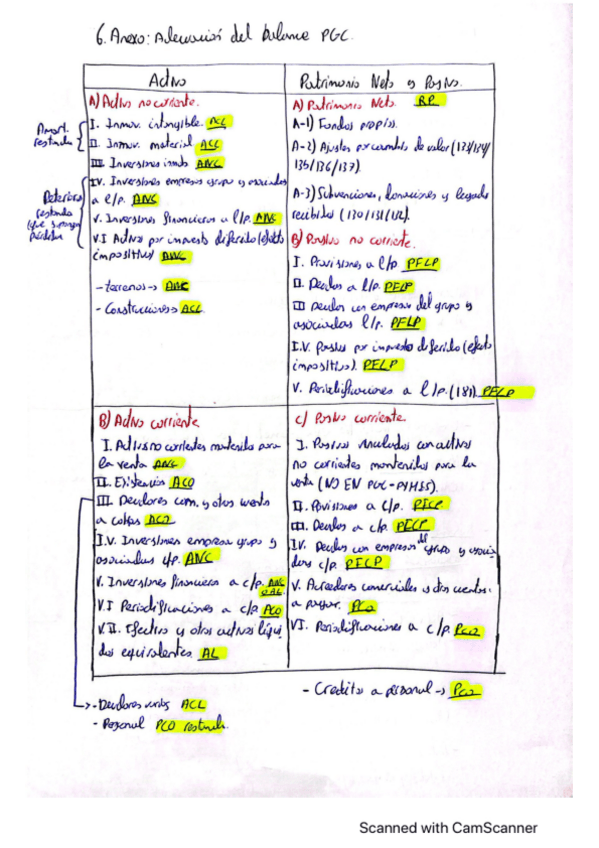 6. Anexo: Adecuación del balance PGC.
Activo
A) Activo no corriente.
Amort. restada
I. Inmov. intangible. ACL
II. Inmov. material ACL
III. Inversiones inmob ANC
Deterioro restado (que suponga pérdida)
IV. Inversiones empresas grupo y asociadas
a l/p. ANC
V. Inversiones financieras a l/p. ANC
V.I Activo por impuesto diferido (efecto
impositivo) ANC
- terrenos → ANC
- Construcciones → ACL
Patrimonio Neto y Pasivo.
A) Patrimonio Neto. RP
A-1) Fondos propios.
A-2) Ajustes por cambio de valor (133/134/
135/136/137).
A-3) Subvenciones, donaciones y legados
recibidos (130/131/132).
B) Pasivo no corriente.
I. Provisiones a l/p PFLP
II. Deudas a l/p. PFLP
III Deudas con empresas del grupo y
asociadas l/p. PFLP
I.V. Pasivos por impuesto diferido (efecto
impositivo). PFLP
V. Periodificaciones a l/p. (181). PFLP
B) Activo corriente
I. Activos no corrientes mantenidos para
la venta ANC
II. Existencias ACO
III. Deudores com. y otras cuentas
a cobrar ACO
I.V. Inversiones empresas grupo y
asociadas c/p. ANC
V. Inversiones financieras a c/p. ANC
o AL
V.I Periodificaciones a c/p ACO
V.II. Efectivo y otros activos líqui
dos equivalentes. AL
C) Pasivo corriente.
I. Pasivos vinculados con activos
no corrientes mantenidos para la
venta (NO EN PGC-PYMES).
II. Provisiones a c/p. PFCP
III. Deudas a c/p. PFCP
IV. Deudas con empresas del grupo y asocia
das c/p. PFCP
V. Acreedores comerciales y otras cuentas
a pagar. PCO
VI. Periodificaciones a c/p. PCO
- Creditos a personal → PCO
→ - Deudores varios ACL
- Personal PCO restando.
Scanned with CamScanner